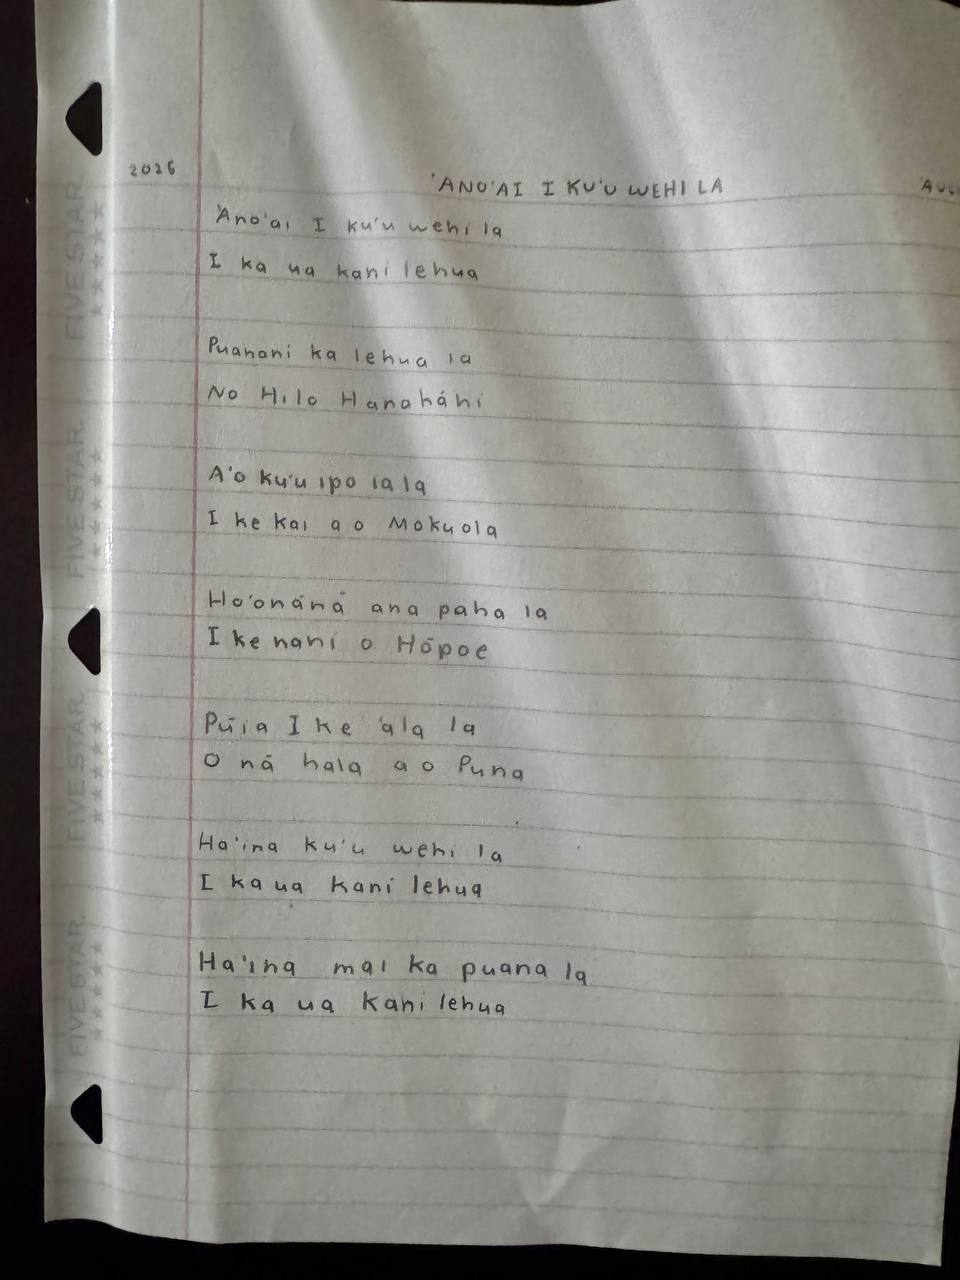 2026
'ANO'AI I KU'U WEHI LA
'Ano'ai I ku'u wehi la
I ka ua kani lehua
Puanani ka lehua la
No Hilo Hanaháhi
A'o ku'u ipo ia la
I ke kai a o Mokuola
Ho'onānā ana paha la
I ke nani o Hōpoe
Pūia I ke 'ala la
O nā hala a o Puna
Ha'ina ku'u wehi la
I ka ua kani lehua
Ha'ina mai ka puana la
I ka ua kani lehua
FIVE STAR
FIVE STAR
FIVE STAR
FIVE STAR